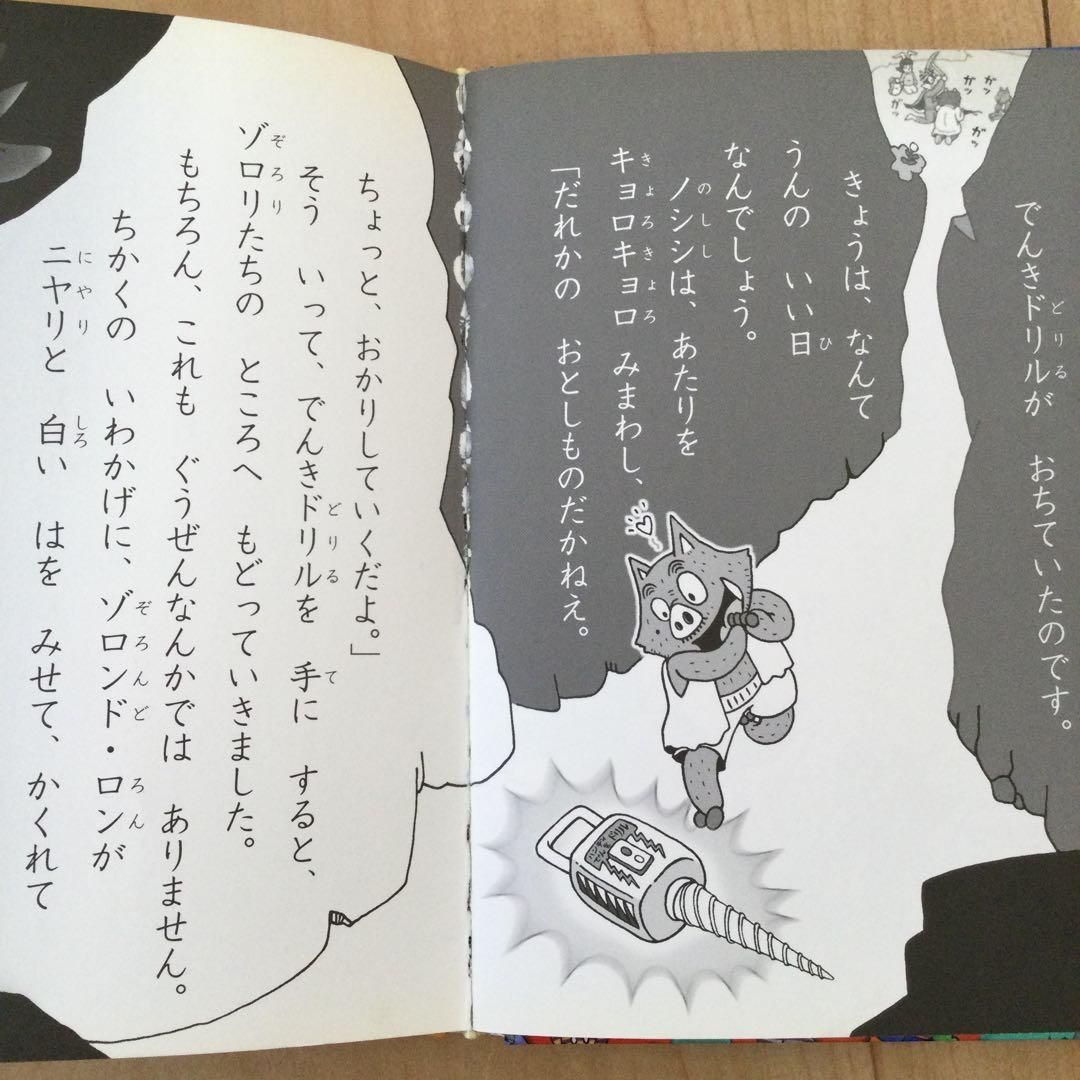 でんきドリルが　おちていたのです。
きょうは、なんて
うんの　いい日
なんでしょう。
ノシシは、あたりを
キョロキョロ　みまわし、
「だれかの　おとしものだかねえ。
ちょっと、おかりしていくだよ。」
そう　いって、でんきドリルを　手に　すると、
ゾロリたちの　ところへ　もどっていきました。
もちろん、これも　ぐうぜんなんかでは　ありません。
ちかくの　いわかげに、ゾロンド・ロンが
ニヤリと　白い　はを　みせて、かくれて
ガッ
ガッ
ガッ
ガッ